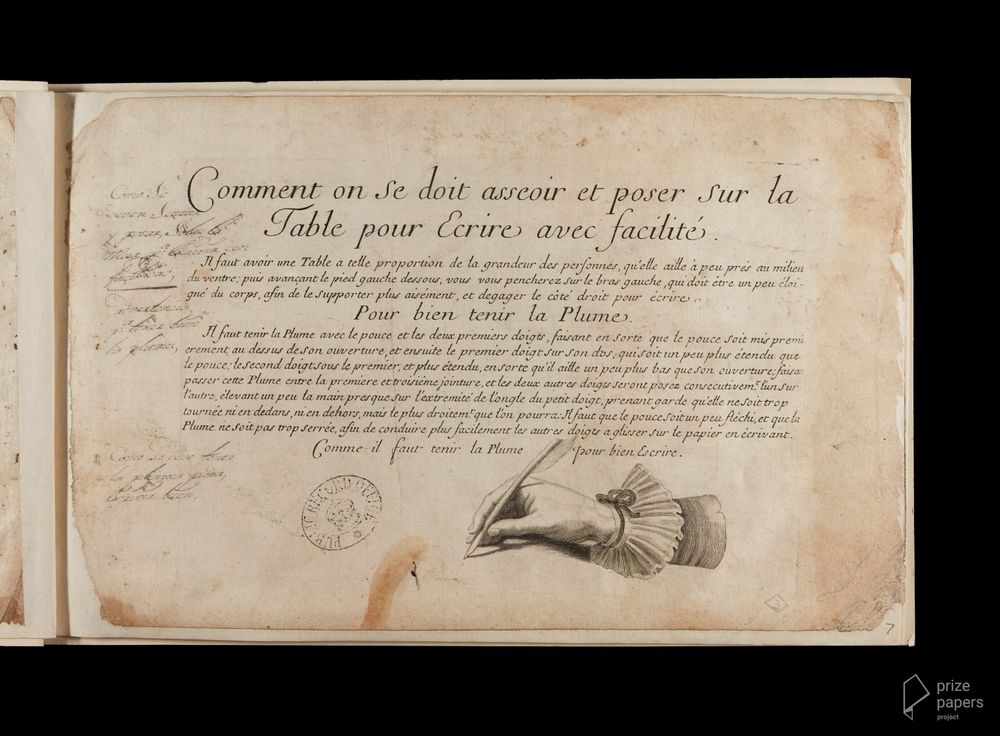 Comment on se doit asseoir et poser sur la
Table pour Ecrire avec facilité.
Il faut avoir une Table a telle proportion de la grandeur des personnes, qu'elle aille à peu prés au milieu
du ventre; puis avançant le pied gauche dessous, vous vous pencherez sur le bras gauche, qui doit étre un peu éloi-
gné du corps, afin de le supporter plus aisément, et degager le côté droit pour écrire.
Pour bien tenir la Plume.
Il faut tenir la Plume avec le pouce et les deux premiers doigts, faisant en sorte que le pouce soit mis premi
erement au dessus de son ouverture, et ensuite le premier doigt sur son dos, qui soit un peu plus étendu que
le pouce; le second doigt sous le premier, et plus étendu, en sorte qu'il aille un peu plus bas que son ouverture; faisan
passer cette Plume entre la premiere et troisiéme jointure, et les deux autres doigts seront posez consecutivemt. l'un sur
l'autre, élevant un peu la main presque sur l'extremité de l'ongle du petit doigt, prenant garde qu'elle ne soit trop
tournée ni en dedans, ni en dehors, mais le plus droitemt. que l'on pourra: Il faut que le pouce soit un peu fléchi, et que la
Plume ne soit pas trop serrée, afin de conduire plus facilement les autres doigts a glisser sur le papier en écrivant.
Comme il faut tenir la Plume pour bien Escrire.
Como Se
y posar
con
bien
la pluma,
Como se deve
la pluma para
bien,
PUBLIC RECORD OFFICE
7
prize
papers
project